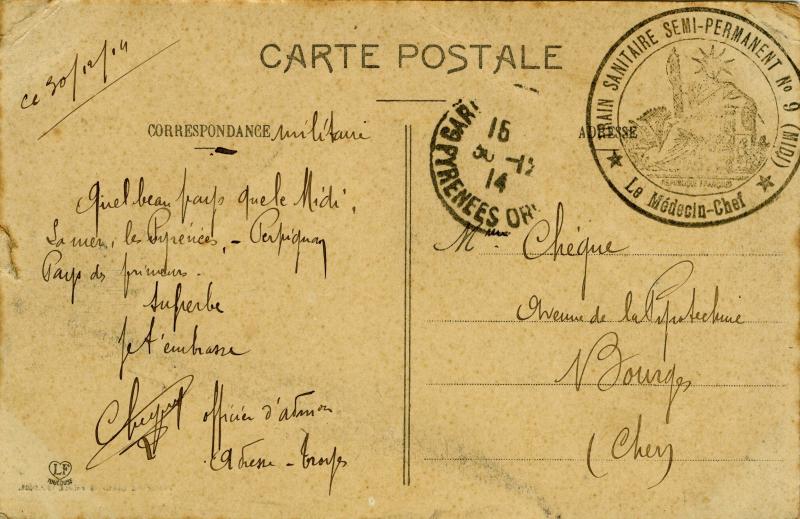 ce 30/12/14
CARTE POSTALE
CORRESPONDANCE militaire
Quel beau pays que le Midi,
La mer, les Pyrénées, - Perpignan
Pays des primeurs.
Superbe
Je t'embrasse
officier d'admon
Adresse - Troyes
LF
ADRESSE
GARE
PYRENEES OR
15
30-12
14
TRAIN SANITAIRE SEMI-PERMANENT No 9 (MIDI)
REPUBLIQUE FRANÇAISE
★ Le Médecin-Chef ★
Mme Chéque
Avenue de la Pyrotechnie
Bourges
(Cher)